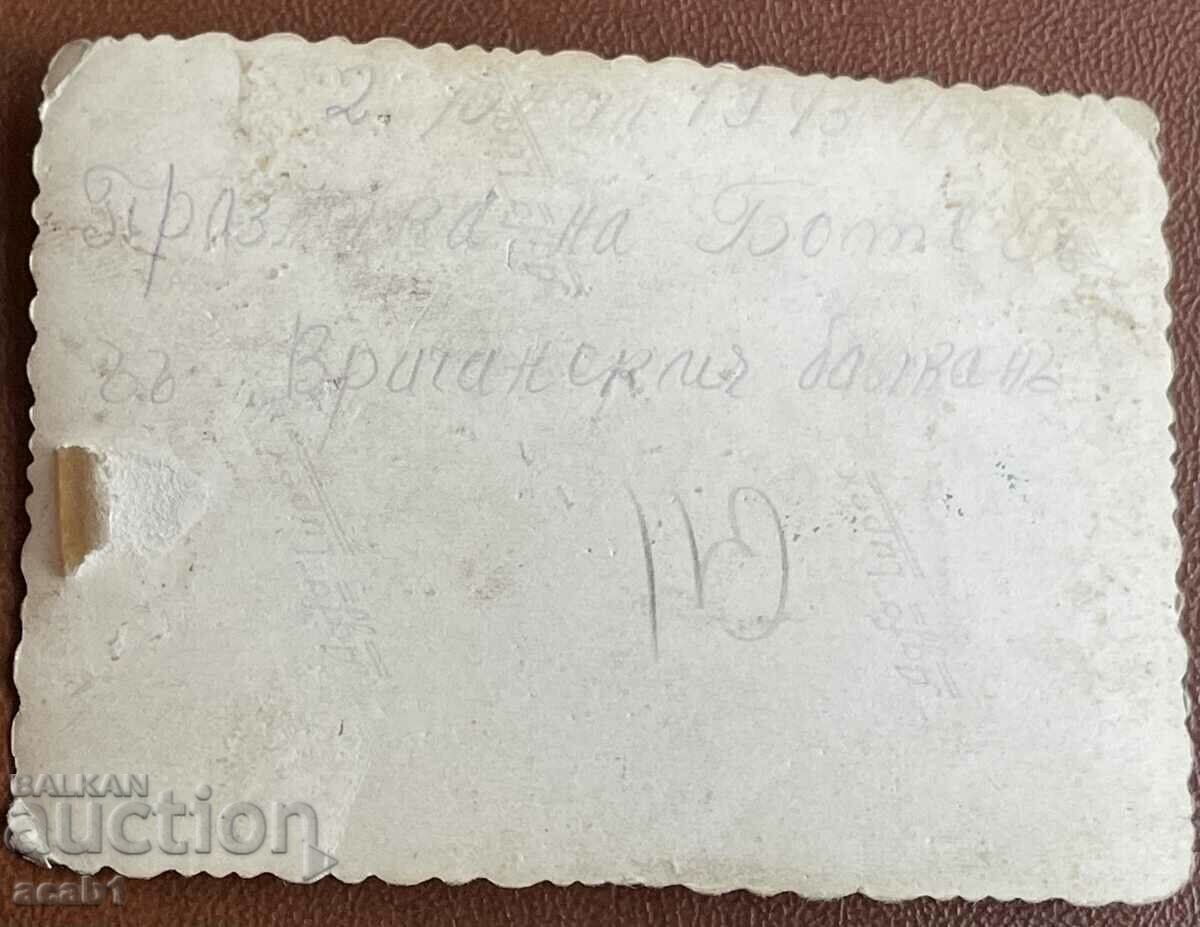 2 юни 1943 г.
Празника на Ботева
въ Врачанския балканъ
BALKAN
auction
acab1